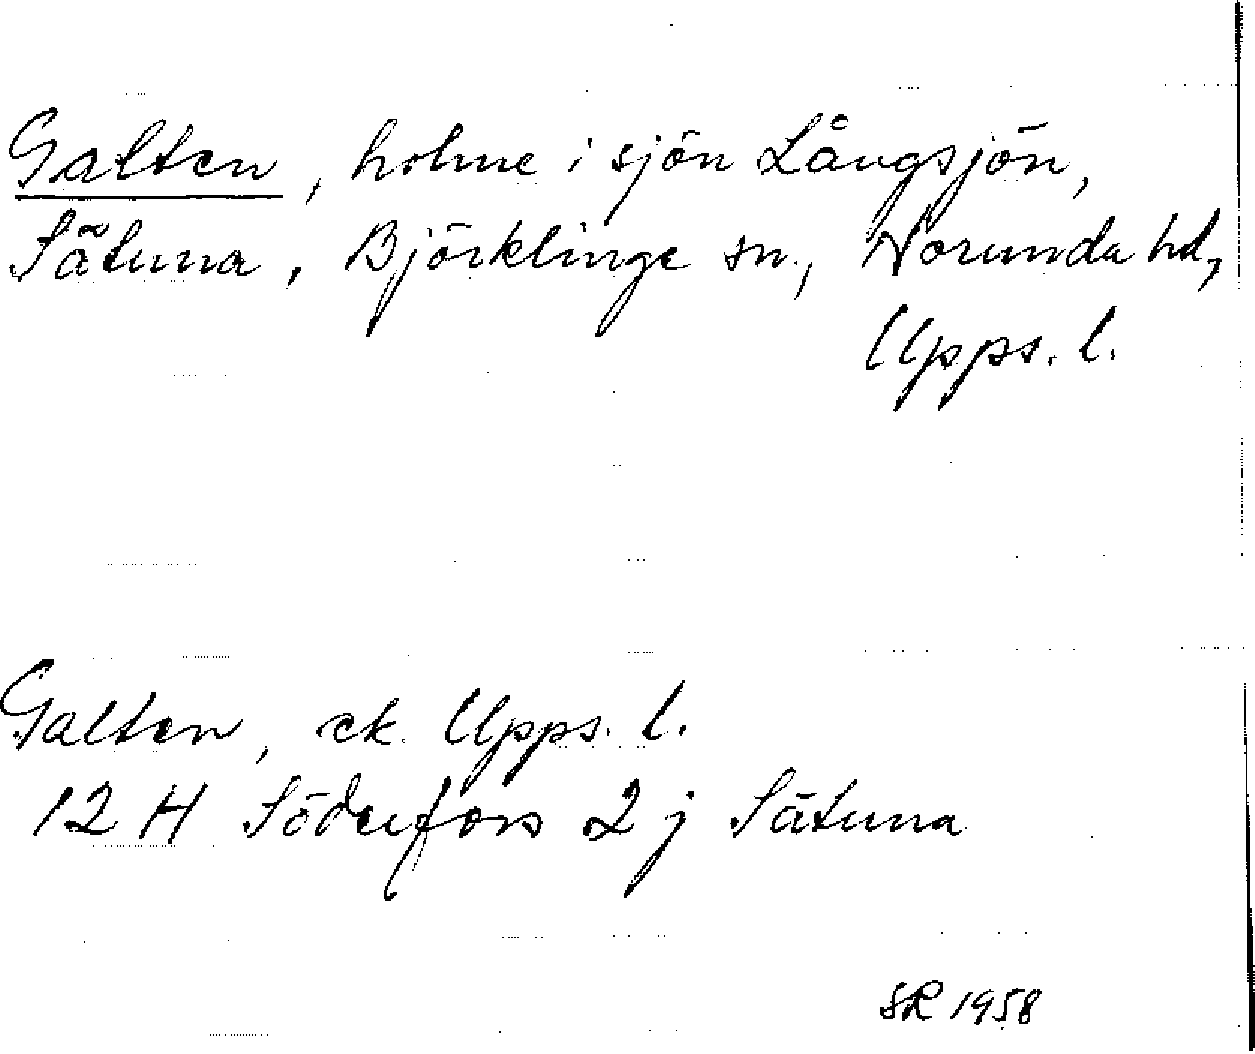 Galten, holme i sjön Långsjön,
Sätuna, Björklinge sn., Norunda hd,
Upps. l.
Galten, ek. Upps. l.
12 H Söderfors 2 j Sätuna
SR 1958